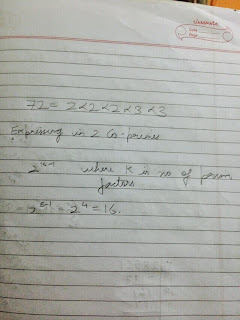 Classmate
Date
Page
72 = 2 × 2 × 2 × 3 × 3
Expressing in 2 Co-primes
2^(k-1) where k is no of prime
factors
= 2^(5-1) = 2^4 = 16.